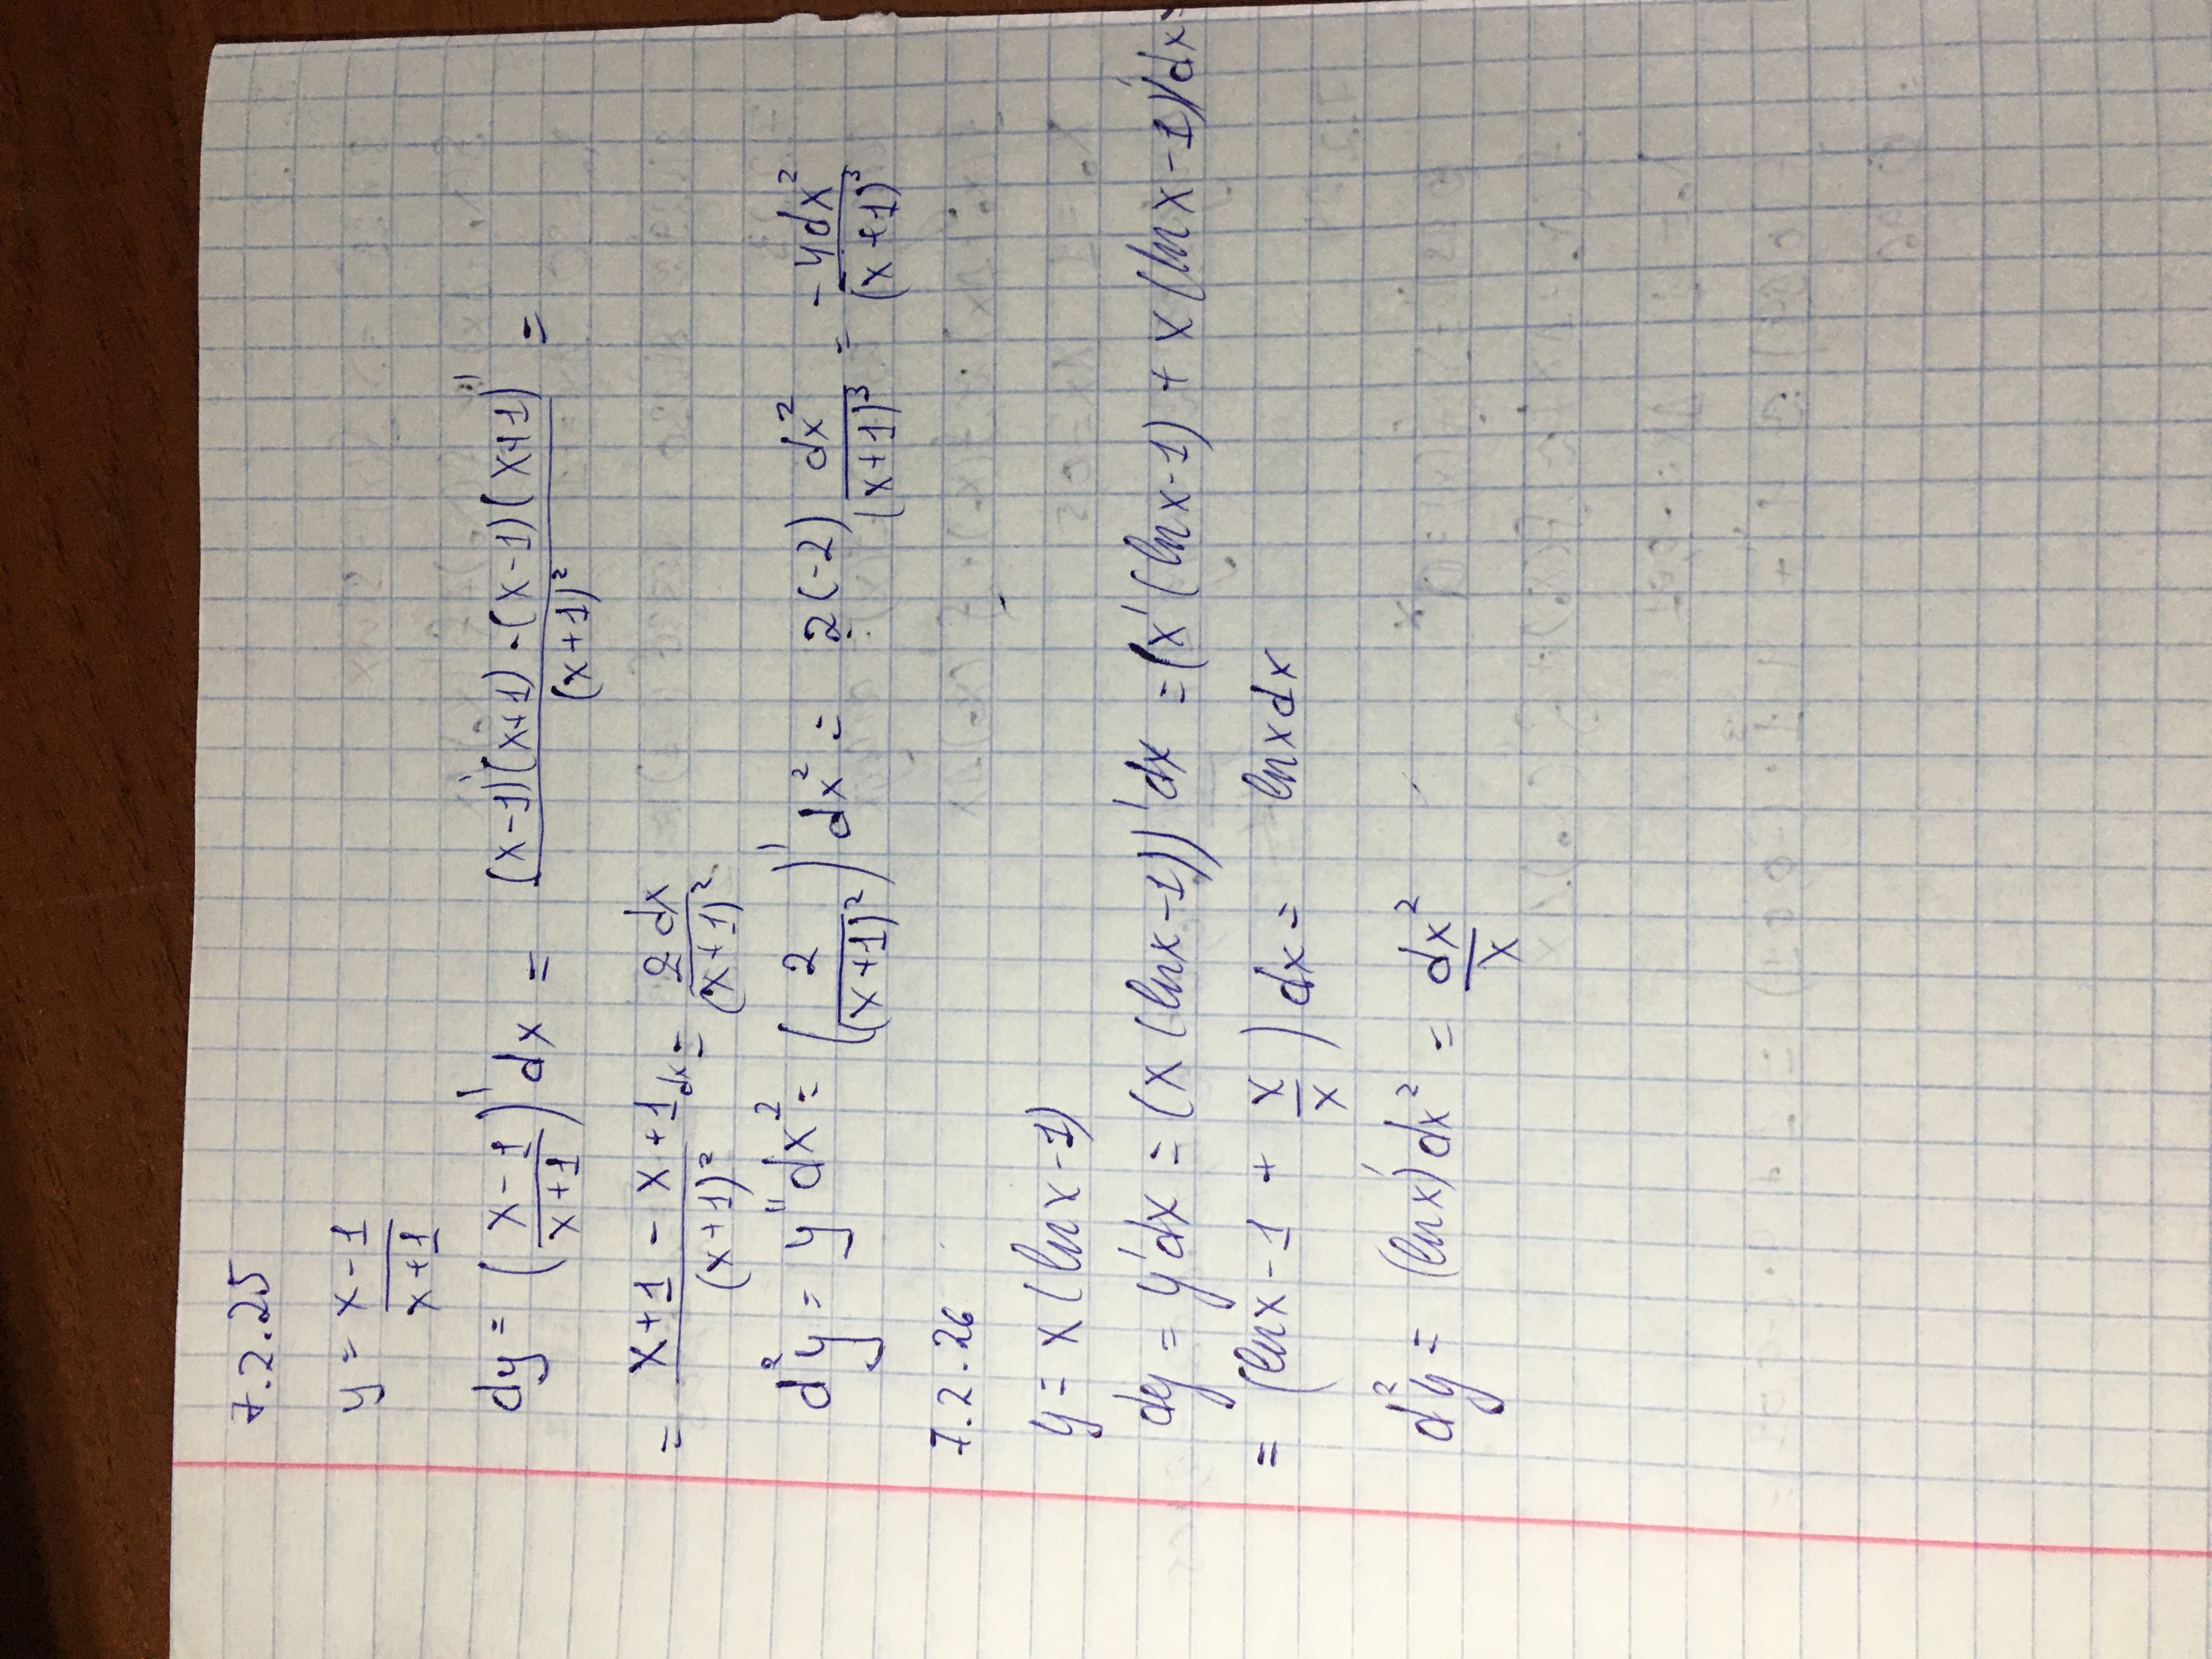 7.2.25
y = (x-1)/(x+1)
dy = ((x-1)/(x+1))' dx = ((x-1)'(x+1) - (x-1)(x+1)')/(x+1)² =
= (x+1 - x+1)/(x+1)² dx = 2dx/(x+1)²
d²y = y'' dx² = (2/(x+1)²)' dx² = 2(-2) dx²/(x+1)³ = -4dx²/(x+1)³
7.2.26
y = x(ln x - 1)
dy = y'dx = (x(ln x - 1))' dx = (x'(ln x - 1) + x(ln x - 1)'dx =
= (ln x - 1 + x/x) dx = ln x dx
d²y = (ln x)' dx² = dx²/x